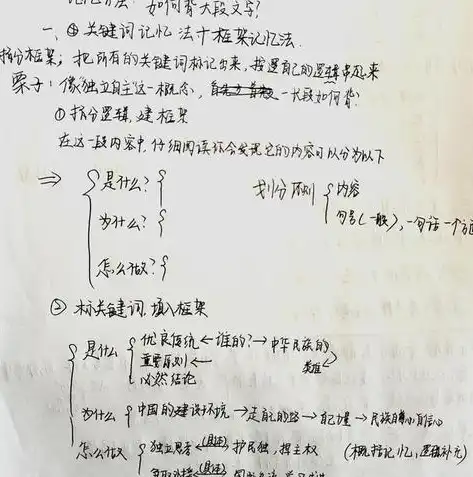 如何背大段文字?
一、① 关键词记忆法+框架记忆法
拆分框架; 把所有的关键词标记出来,按照自己的逻辑串起来
栗子: 像独立自主这一概念, 一大段如何背?
① 拆分逻辑,建框架
在这一段内容中,仔细阅读你会发现它的内容可以分为以下
⇒ 是什么?
为什么?
怎么做?
划分原则 内容
句号(一般),一句话一个方面
② 标关键词,填入框架
是什么 优良传统 ← 谁的? → 中华民族的
重要原则 ←
必然结论
为什么 中国的建设环境 → 走自己的路 → 自力量 → 民族自尊心自信心
怎么做 独立思考 ←(具体) 护民独,捍主权 (概括记忆,逻辑补充)